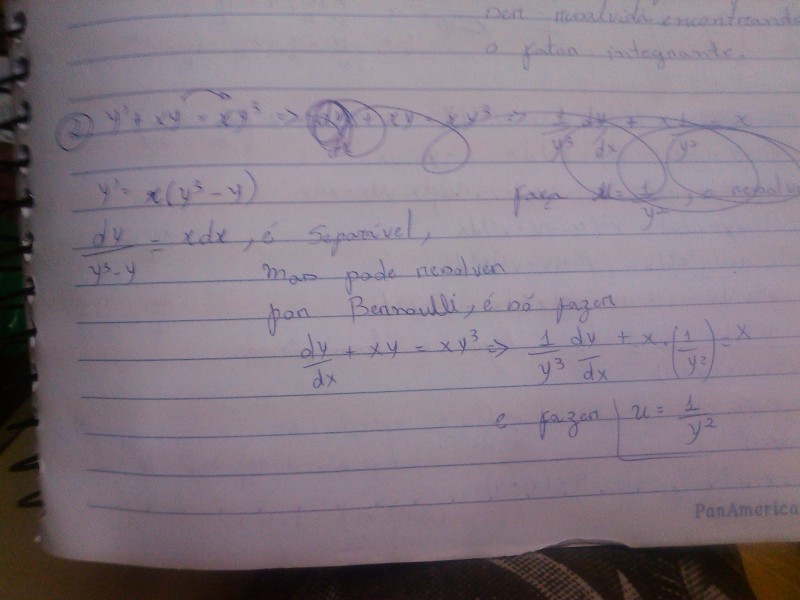 ser resolvida encontrando
o fator integrante.
2) y' + xy = xy³ => dy/dx + xy = xy³ => 1/y³ dy/dx + x 1/y² = x
y' = x(y³ - y) faça u = 1/y², e resolva
dy/(y³-y) = xdx, é separável,
mas pode resolver
por Bernoulli, é só fazer
dy/dx + xy = xy³ => 1/y³ dy/dx + x.(1/y²) = x
e fazer u = 1/y²
PanAmerica